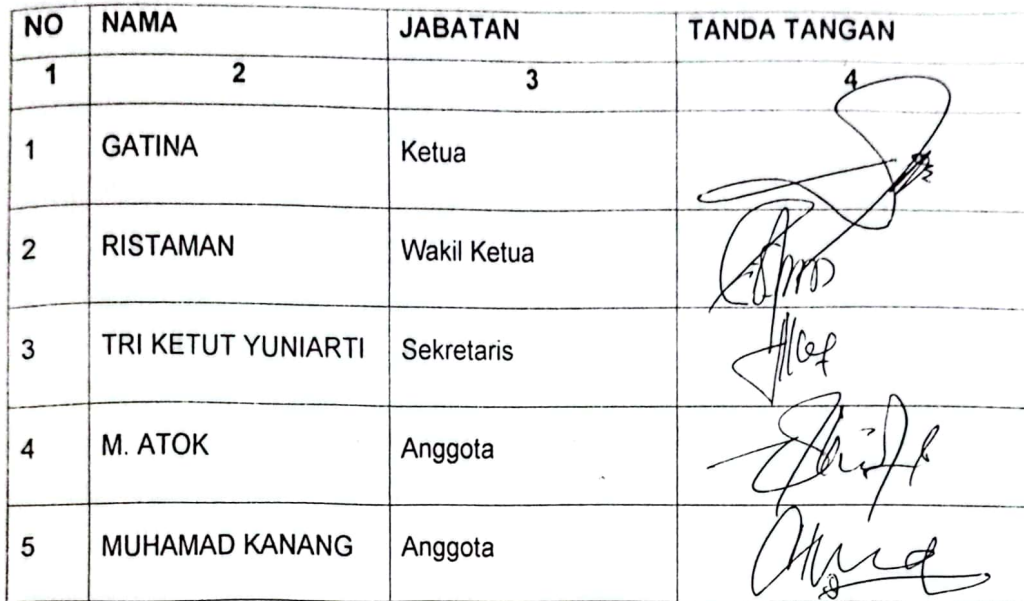 NO NAMA JABATAN TANDA TANGAN
1 2 3 4
1 GATINA Ketua
2 RISTAMAN Wakil Ketua
3 TRI KETUT YUNIARTI Sekretaris
4 M. ATOK Anggota
5 MUHAMAD KANANG Anggota